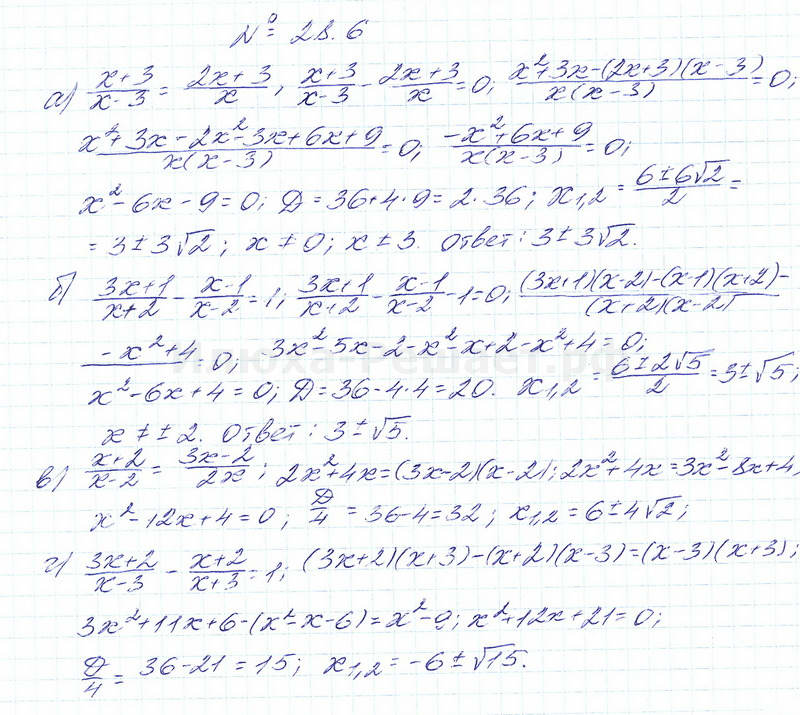 № 28.6
а) (x+3)/(x-3) = (2x+3)/x, (x+3)/(x-3) - (2x+3)/x = 0; (x²+3x-(2x+3)(x-3))/(x(x-3)) = 0;
(x²+3x-2x²-3x+6x+9)/(x(x-3)) = 0; (-x²+6x+9)/(x(x-3)) = 0;
x²-6x-9=0; D=36+4·9=2·36; x₁,₂ = (6±6√2)/2 =
= 3±3√2; x≠0; x≠3. Ответ: 3±3√2.
б) (3x+1)/(x+2) - (x-1)/(x-2) = 1; (3x+1)/(x+2) - (x-1)/(x-2) - 1=0; ((3x+1)(x-2)-(x-1)(x+2)-)/((x+2)(x-2))
-x²+4 = 0; 3x²-5x-2-x²-x+2-x²+4=0;
x²-6x+4=0; D=36-4·4=20. x₁,₂ = (6±2√5)/2 = 3±√5;
x≠±2. Ответ: 3±√5.
в) (x+2)/(x-2) = (3x-2)/(2x); 2x²+4x=(3x-2)(x-2); 2x²+4x=3x²-8x+4;
x²-12x+4=0; D/4 = 36-4=32; x₁,₂=6±4√2;
г) (3x+2)/(x-3) - (x+2)/(x+3) = 1; (3x+2)(x+3)-(x+2)(x-3)=(x-3)(x+3);
3x²+11x+6-(x²-x-6)=x²-9; x²+12x+21=0;
D/4 = 36-21=15; x₁,₂=-6±√15.
Илюха-Решает.рф